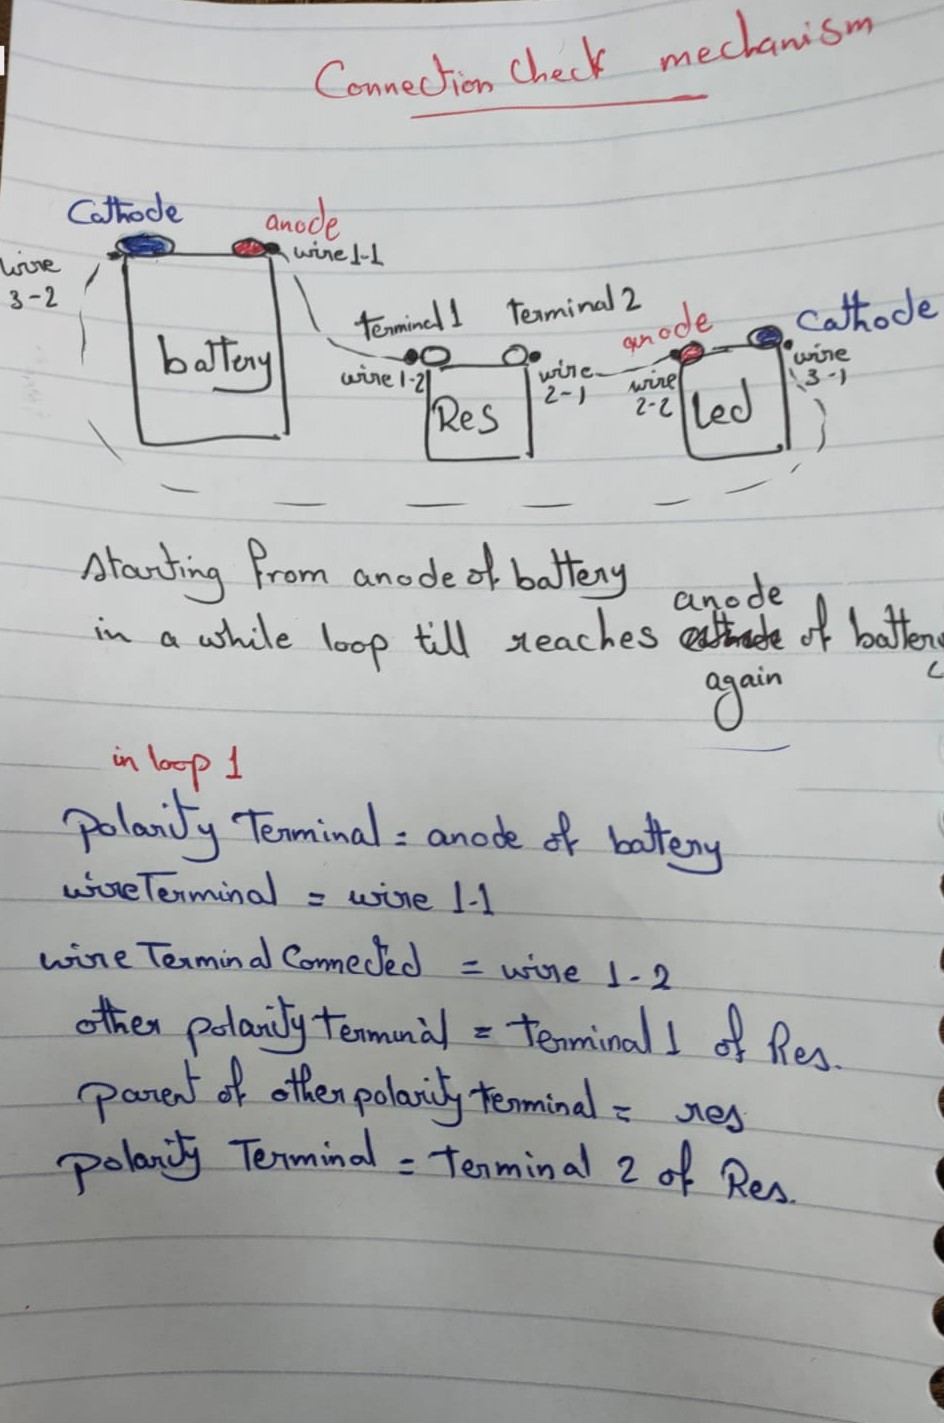 Connection Check mechanism
Cathode
anode
wire 1-1
wire
3-2
battery
terminal 1
Terminal 2
wire 1-2
Res
wire
2-1
anode
Cathode
wire
2-2
wire
3-1
Led
Starting from anode of battery
anode
in a while loop till reaches cathode of battery
again
in loop 1
Polarity Terminal = anode of battery
wireTerminal = wire 1-1
wire Terminal Connected = wire 1-2
other polarity terminal = terminal 1 of Res.
parent of other polarity terminal = res
polarity Terminal = terminal 2 of Res.